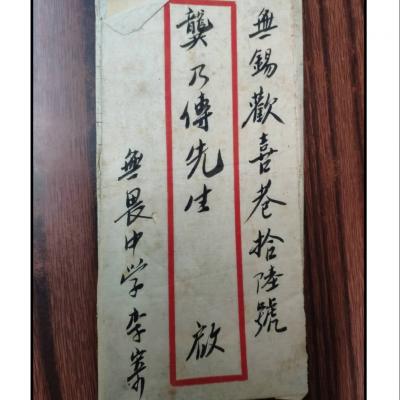 無錫歡喜巷拾陸號
龔乃傳先生 啟
無畏中学李